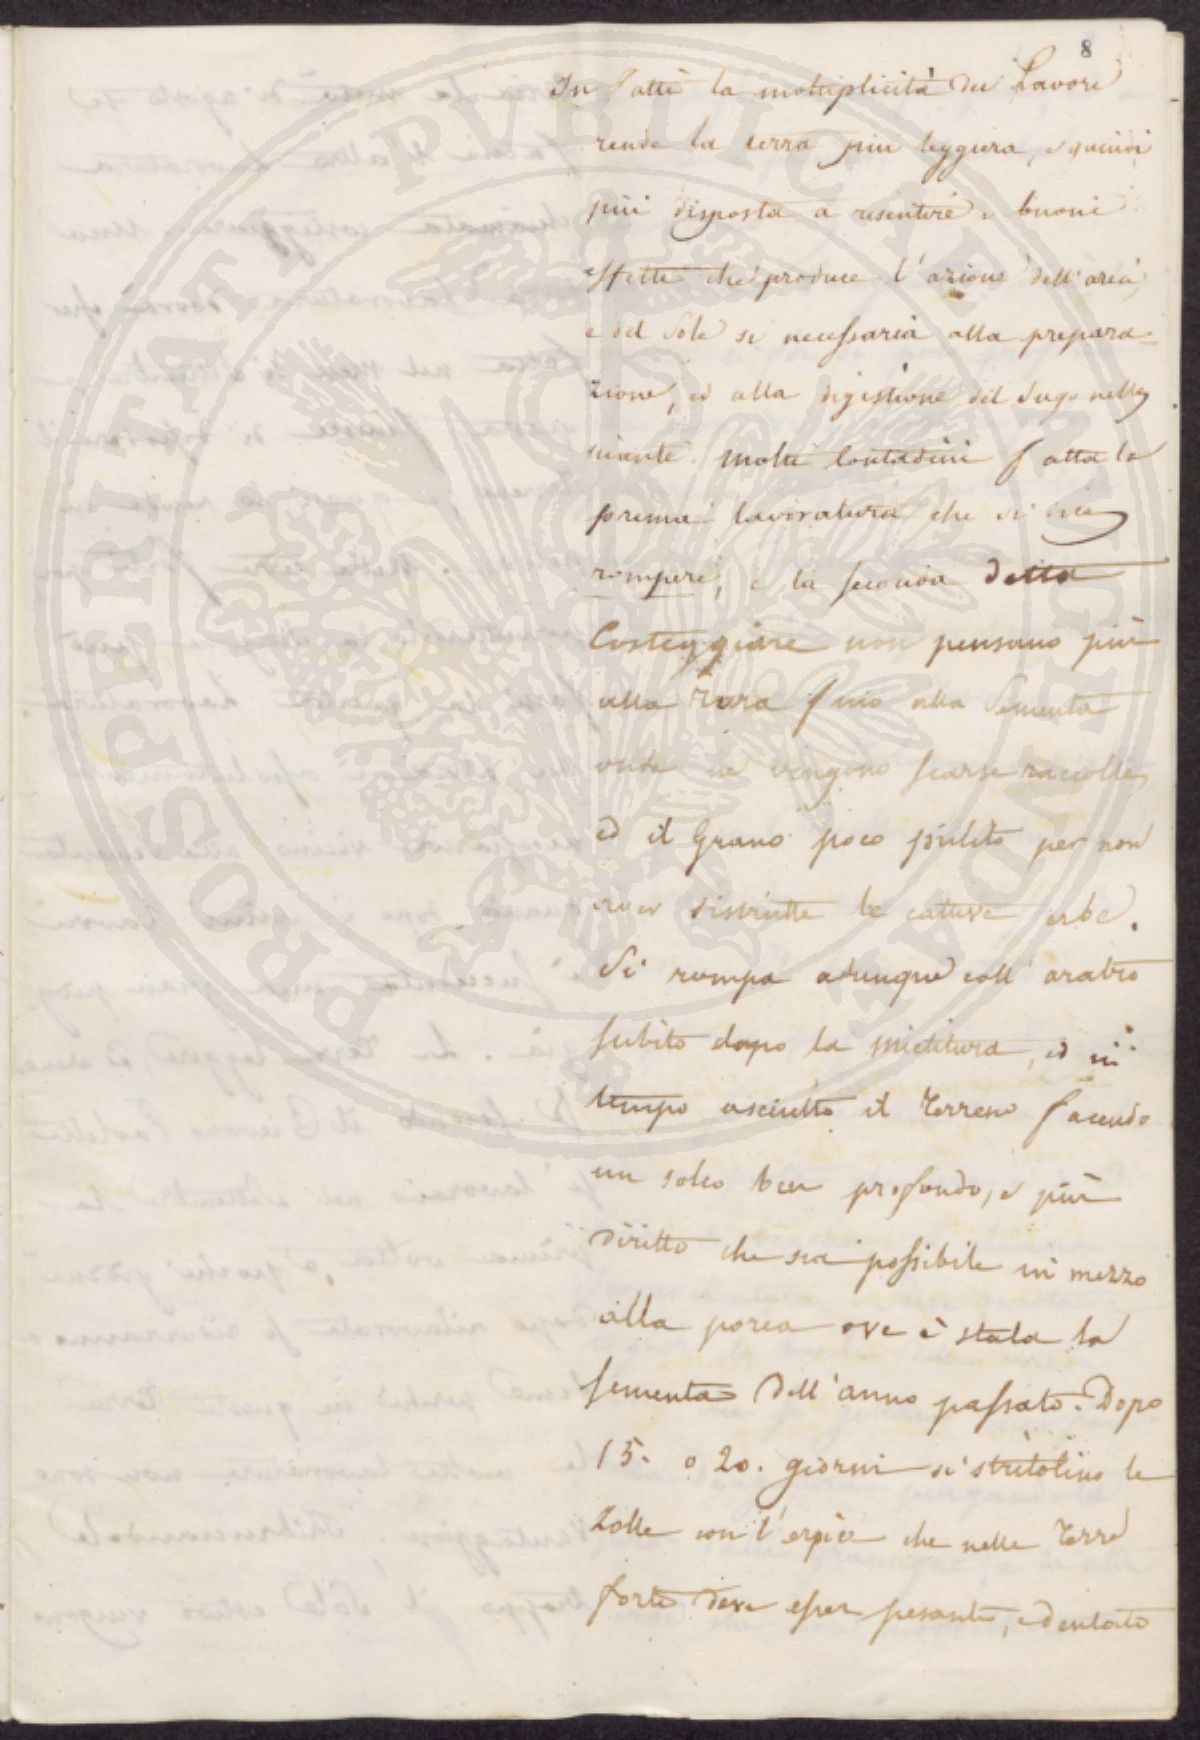 8
In fatti la moltiplicità dei Lavori
rende la terra piu leggiera, e quindi
più disposta a risentire i buoni
effetti che produce l'azione dell'aria,
e del Sole si necessaria alla prepara-
zione, ed alla digestione del Sugo nelle
piante. Molti Contadini fatta la
prima lavoratura che si dice
rompere, e la seconda detta
Costeggiare non pensano più
alla Terra fino alla Sementa
onde ne vengono scarse raccolte,
ed il Grano poco pulito per non
aver distrutte le cattive erbe.
Si rompa adunque coll'aratro
subito dopo la mietitura, ed in
tempo asciutto il Terreno facendo
un solco ben profondo, e più
diritto che sia possibile in mezzo
alla porca ove è stata la
sementa dell'anno passato. Dopo
15. o 20. giorni si stritolino le
Zolle con l'erpice che nelle Terre
forti deve esser pesante, e dentato
PROSPERITATI PUBLICAE AUGENDAE